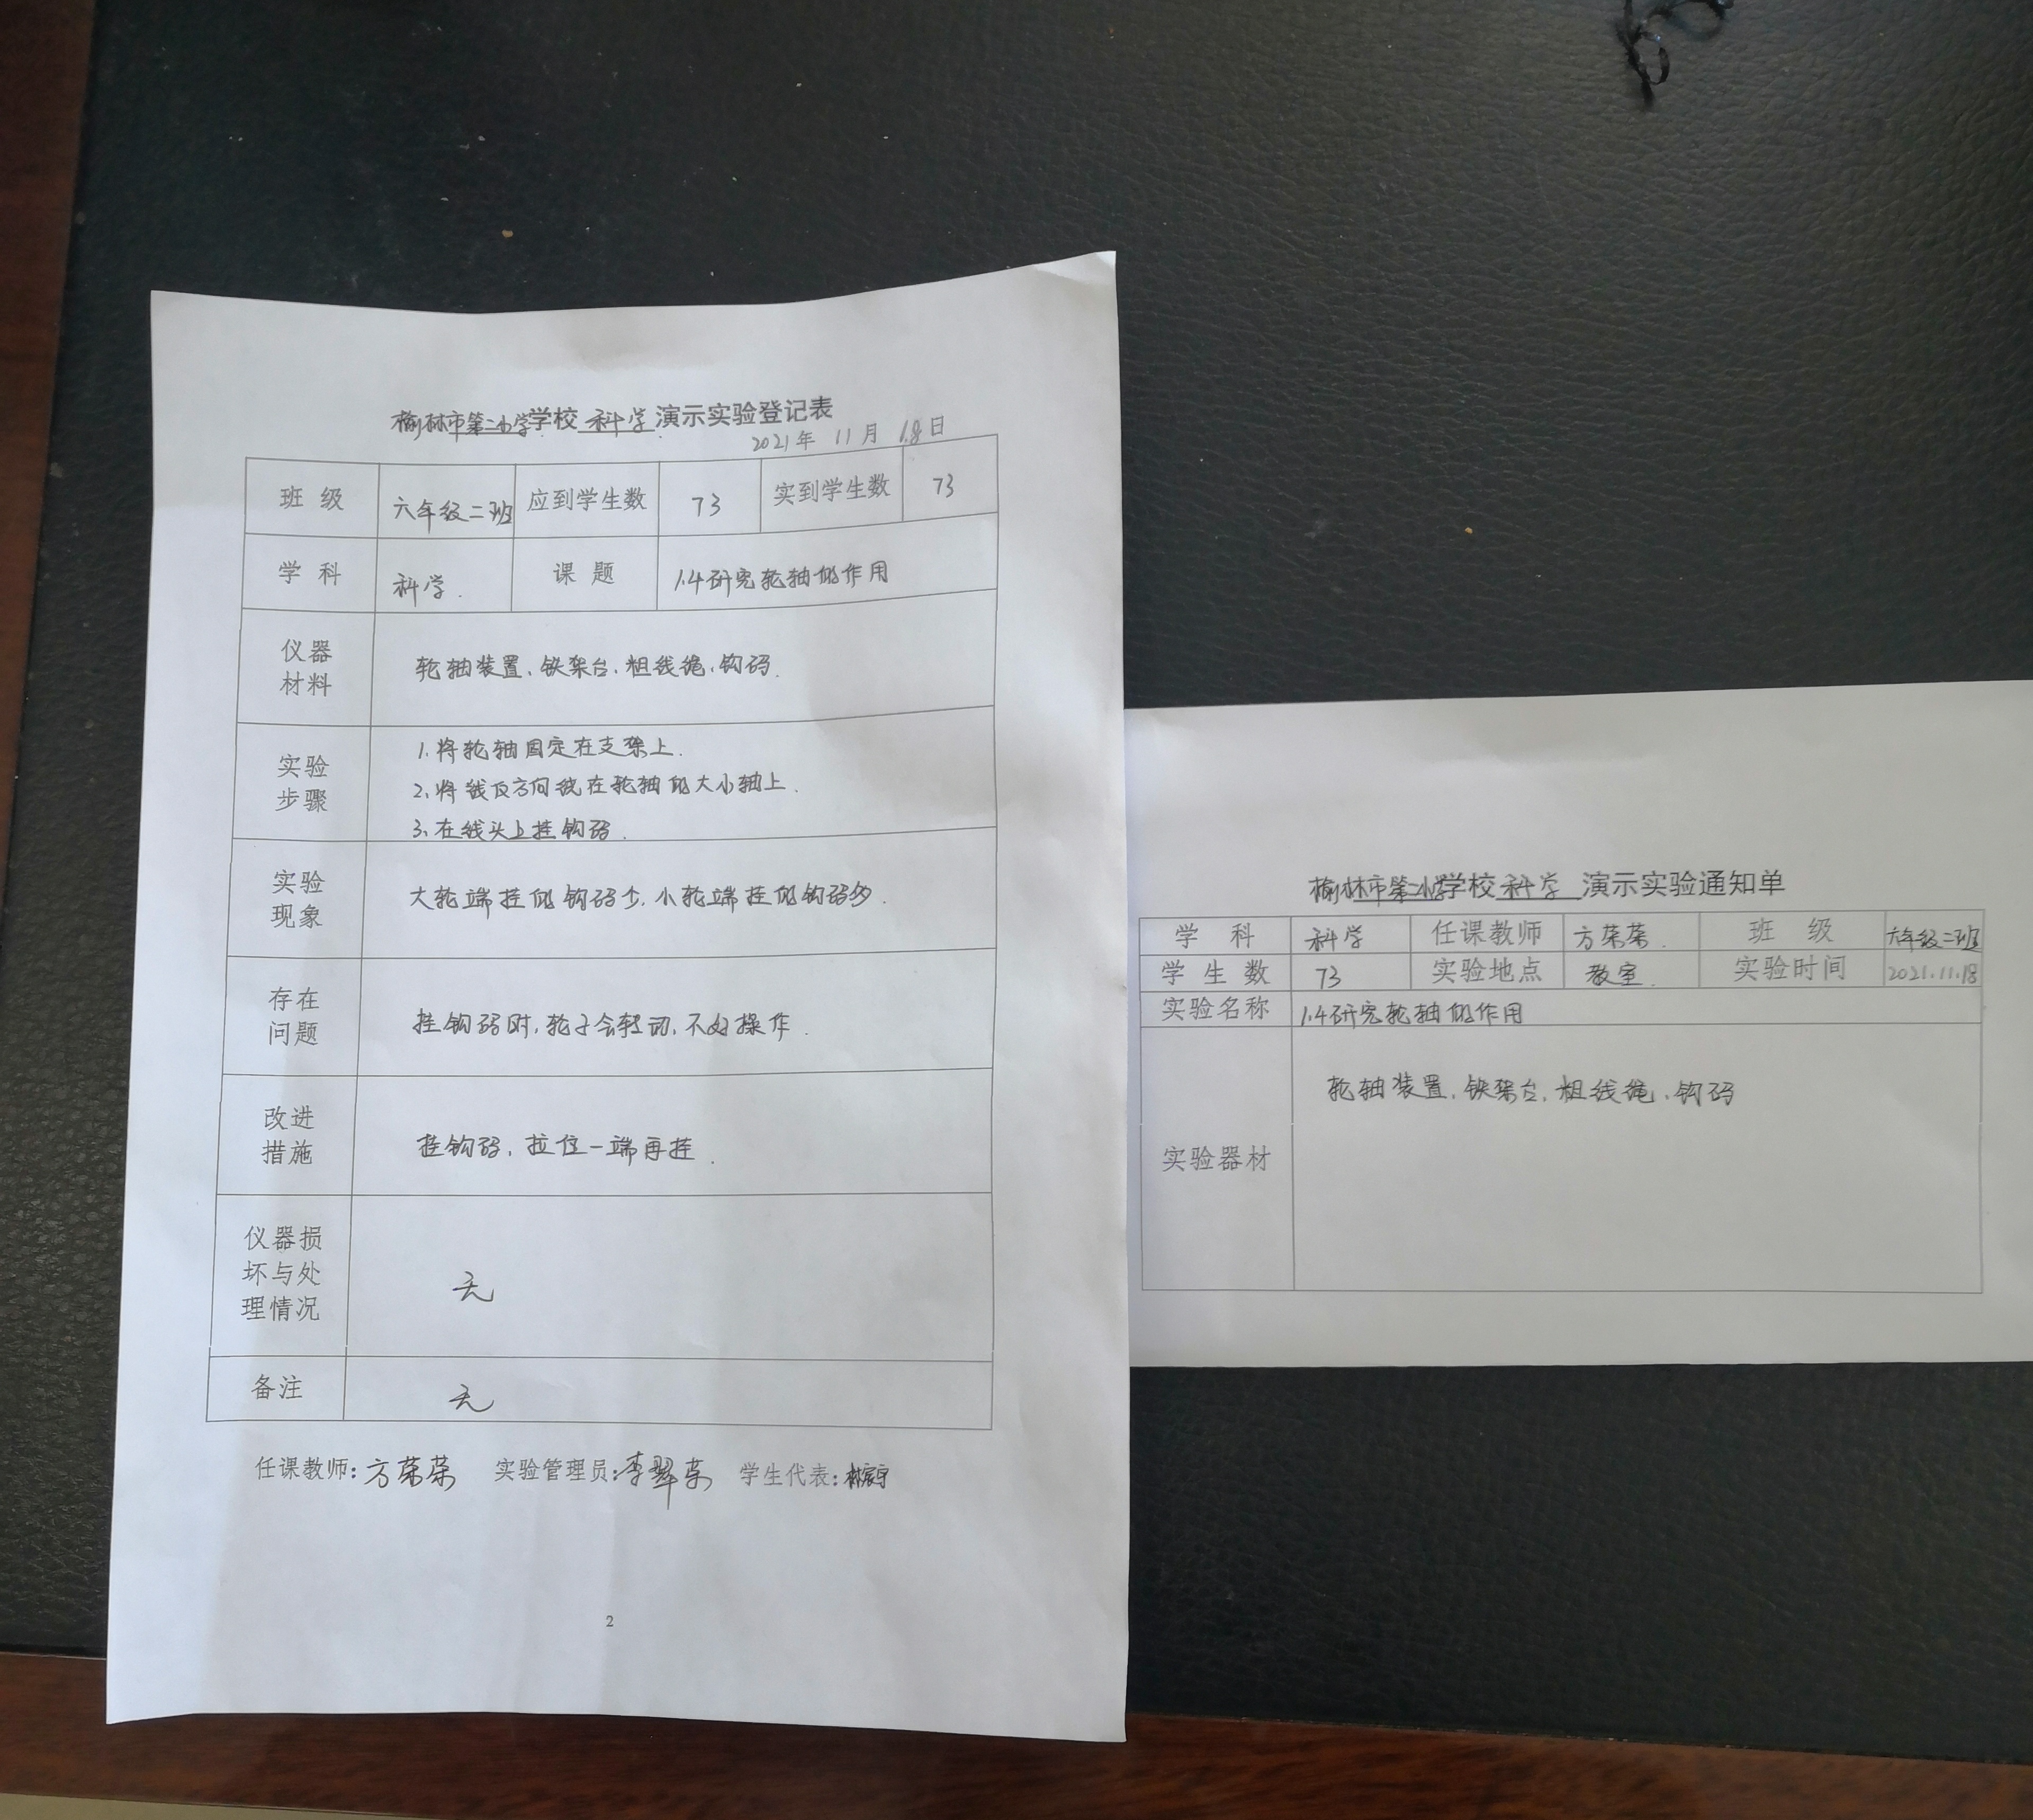 榆林市第二小学学校 科学 演示实验登记表
2021年 11月 18日
班 级 六年级二班 应到学生数 73 实到学生数 73
学 科 科学. 课 题 1.4研究轮轴的作用
仪器
材料
轮轴装置、铁架台、粗线绳、钩码.
实验
步骤
1.将轮轴固定在支架上.
2、将线反方向绕在轮轴的大小轴上.
3、在线头上挂钩码.
实验
现象
大轮端挂的钩码少,小轮端挂的钩码多.
存在
问题
挂钩码时,轮子会转动,不好操作.
改进
措施
挂钩码,拉住一端再挂.
仪器损
坏与处
理情况
无
备注 无
任课教师: 方荣荣 实验管理员: 李翠 学生代表:
2
榆林市第二小学学校 科学 演示实验通知单
学 科 科学 任课教师 方荣荣. 班 级 六年级二班
学 生 数 73 实验地点 教室. 实验时间 2021.11.18
实验名称 1.4研究轮轴的作用
实验器材
轮轴装置、铁架台、粗线绳、钩码